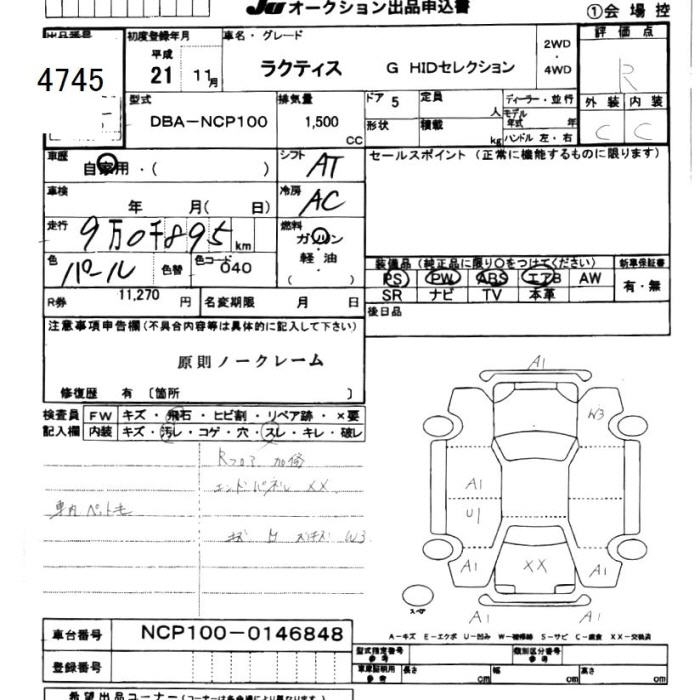 JU オークション出品申込書
①会場控
出品番号
4745
初度登録年月
平成
21 11月
車名・グレード
ラクティス G HIDセレクション
2WD
・
4WD
評価点
R
型式
DBA-NCP100
排気量
1,500
cc
ドア 5
形状
定員
人
積載
kg
ディーラー・並行
モデル
年式 年
ハンドル 左・右
外装 内装
C C
車歴
自家用・( )
シフト
AT
車検
年 月( 日)
冷房
AC
走行
9万0千895 km
燃料
ガソリン
軽油
( )
色
パール
色替
色コード
040
R券 11,270 円
名変期限 月 日
セールスポイント(正常に機能するものに限ります)
装備品(純正品に限り○をつけてください)
新車保証書
PS PW ABS エアB AW
SR ナビ TV 本革
有・無
後日品
注意事項申告欄(不具合内容等は具体的に記入して下さい)
原則ノークレーム
修復歴 有 〔箇所 〕
検査員
記入欄
FW キズ・飛石・ヒビ割・リペア跡・×要
内装 キズ・汚レ・コゲ・穴・スレ・キレ・破レ
Rフロア 加修
エンドパネル XX
車内 ペット毛
W3
A1
W3
A1
U1
A1
XX
A1
A1
A1
スペア
A-キズ E-エクボ U-凹み W-補修跡 S-サビ C-腐食 XX-交換済
車台番号 NCP100-0146848
登録番号
型式指定番号
参考
類別区分番号
参考
車庫証明用
参考
長さ cm
幅 cm
高さ cm
希望出品コーナー